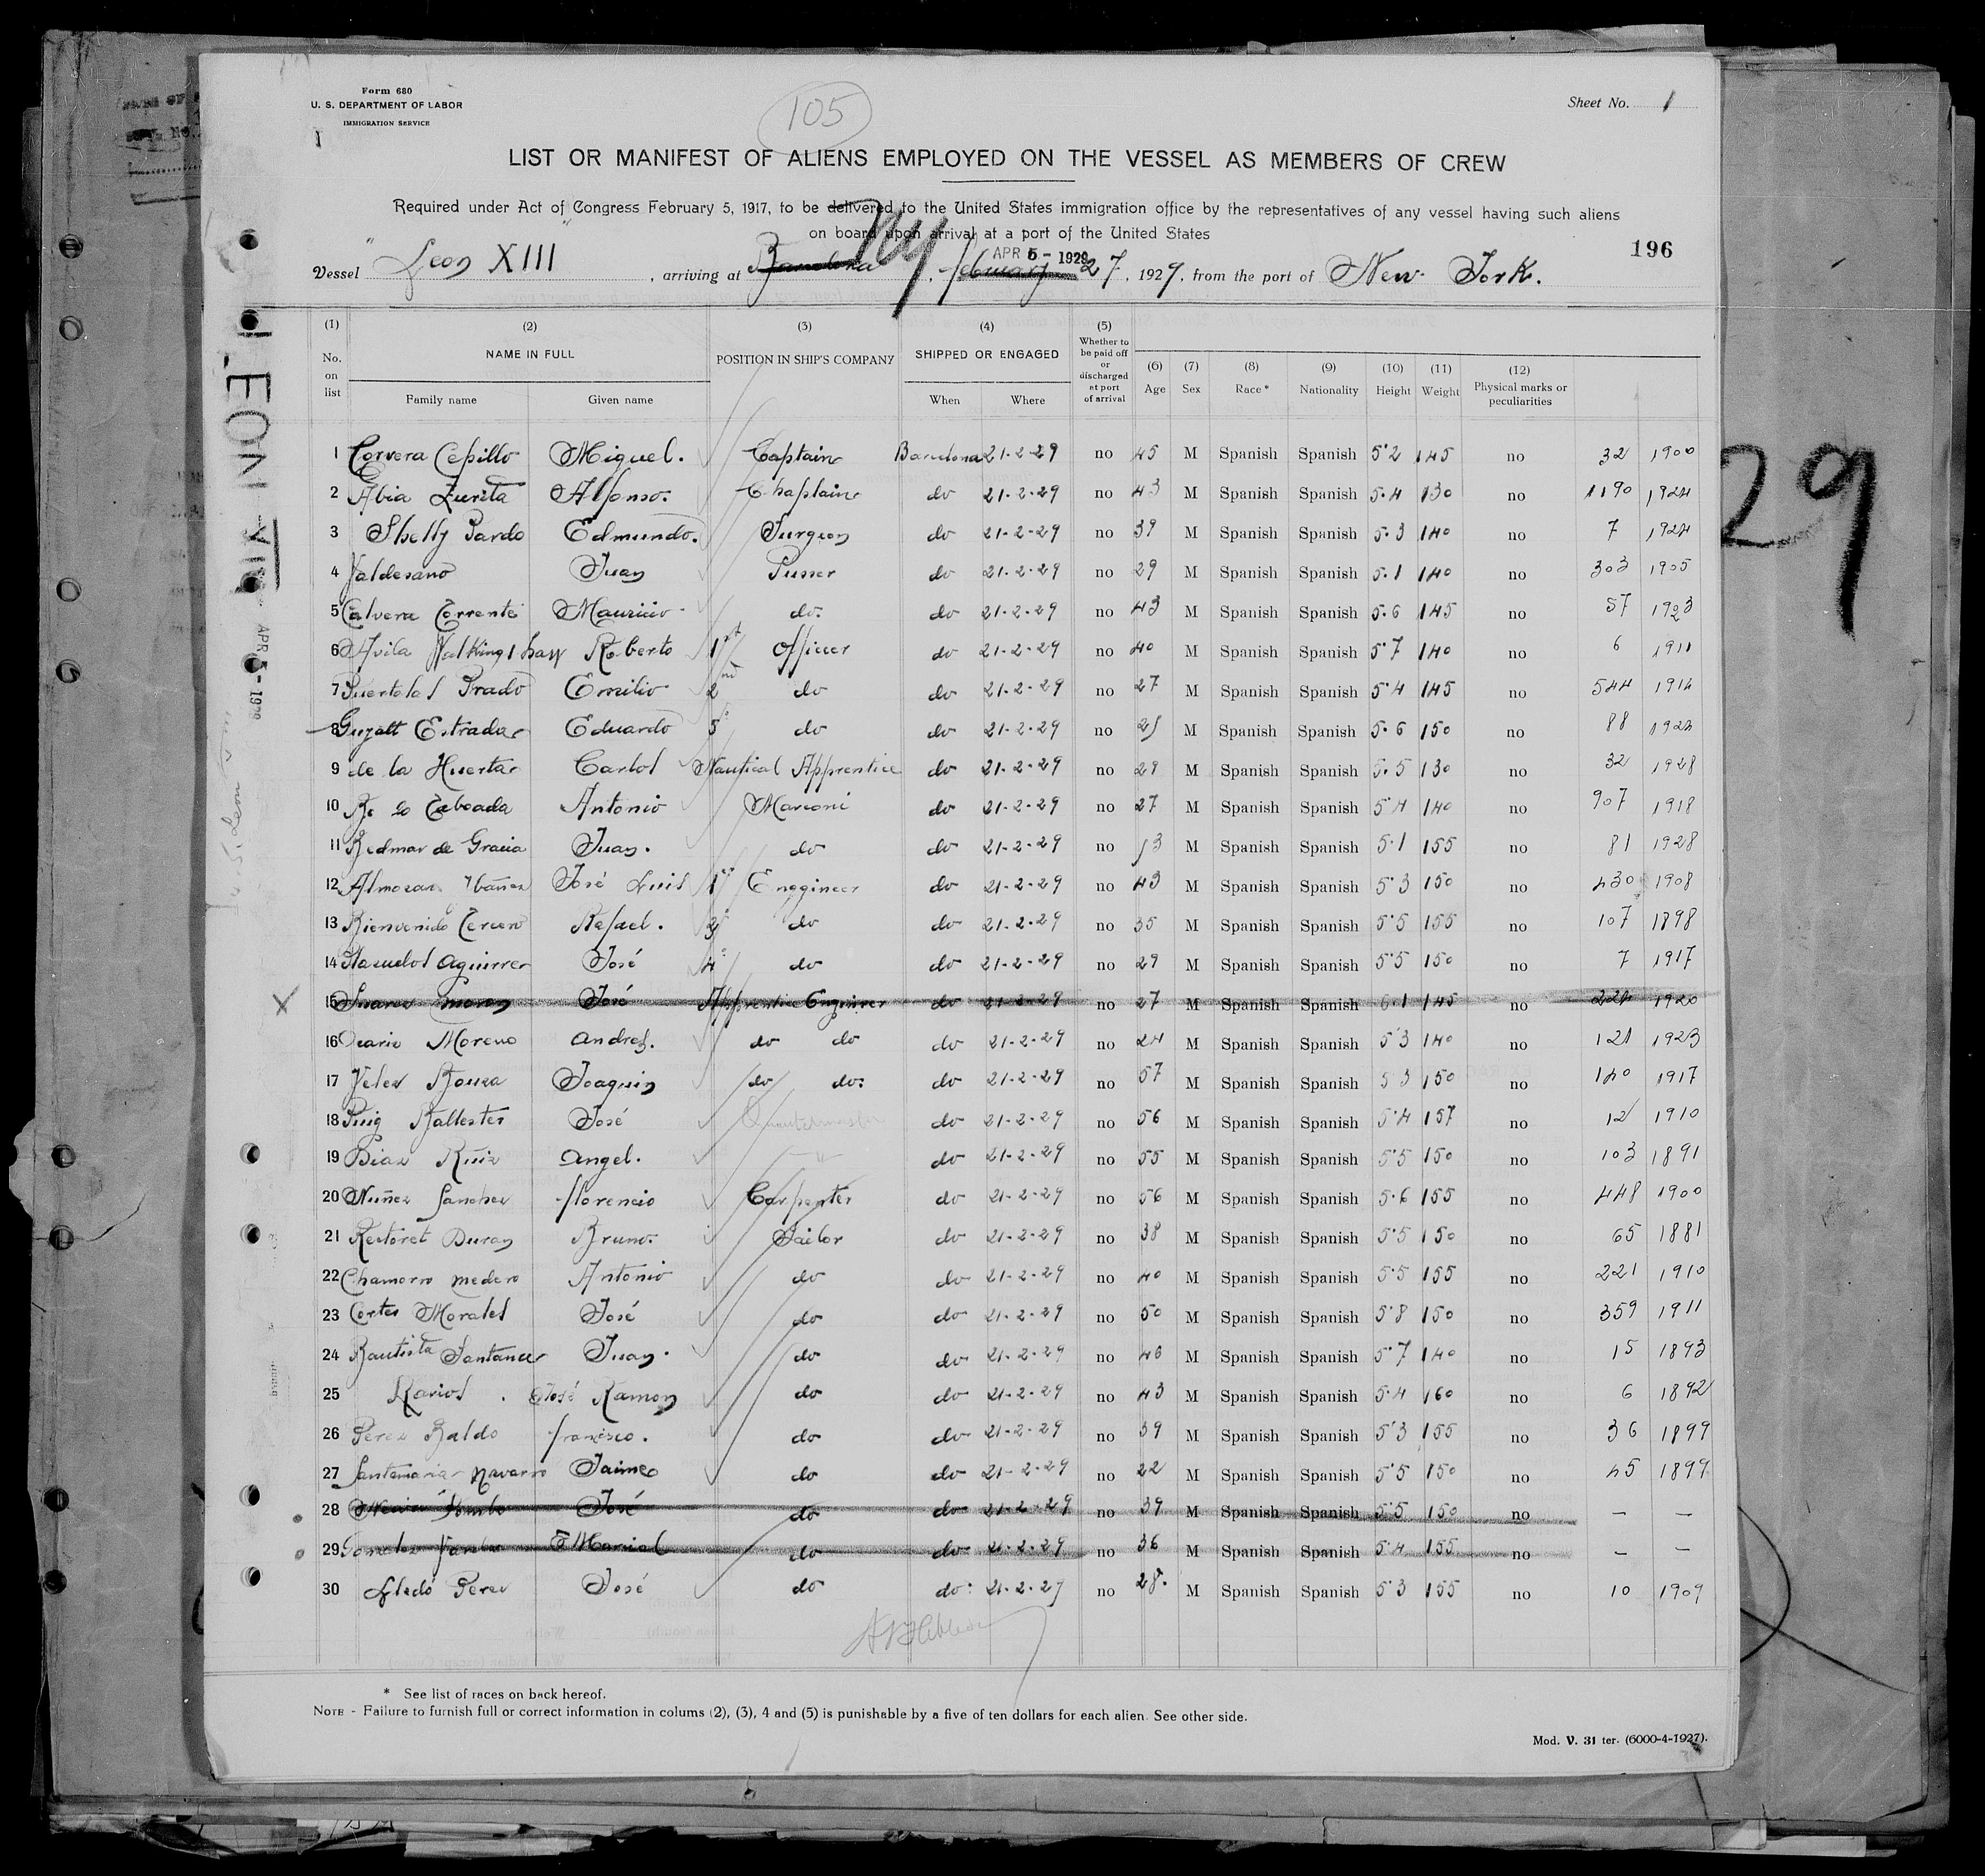 Form 680
U. S. DEPARTMENT OF LABOR
IMMIGRATION SERVICE
105
Sheet No. 1
LIST OR MANIFEST OF ALIENS EMPLOYED ON THE VESSEL AS MEMBERS OF CREW
Required under Act of Congress February 5, 1917, to be delivered to the United States immigration office by the representatives of any vessel having such aliens
on board upon arrival at a port of the United States
196
APR 5 - 1929
Vessel "Leon XIII", arriving at Barcelona NY, february 27, 1929, from the port of New York.
LEON XIII
APR 5 - 1929
29
(1) (2) (3) (4) (5) (6) (7) (8) (9) (10) (11) (12)
No. on list NAME IN FULL POSITION IN SHIP'S COMPANY SHIPPED OR ENGAGED Whether to be paid off or discharged at port of arrival Age Sex Race * Nationality Height Weight Physical marks or peculiarities
Family name Given name When Where
1 Corvera Cepillo Miguel. Captain Barcelona 21-2-29 no 45 M Spanish Spanish 5'2 145 no 32 1900
2 Abia Zurita Alfonso. Chaplain do 21-2-29 no 43 M Spanish Spanish 5.4 130 no 1190 1924
3 Shelly Pardo Edmundo. Surgeon do 21-2-29 no 39 M Spanish Spanish 5.3 140 no 7 1924
4 Valdesano Juan Purser do 21-2-29 no 29 M Spanish Spanish 5.1 140 no 303 1905
5 Calvera Torrente Mauricio do. do 21-2-29 no 43 M Spanish Spanish 5.6 145 no 57 1923
6 Avila Roberto 1st officer do 21-2-29 no 40 M Spanish Spanish 5'7 140 no 6 1911
7 Puertolas Prado Emilio 2nd do do 21-2-29 no 27 M Spanish Spanish 5'4 145 no 544 1914
8 Estrada Eduardo 5º do do 21-2-29 no M Spanish Spanish 5.6 150 no 88 1924
9 de la Huerta Carlos Nautical Apprentice do 21-2-29 no 29 M Spanish Spanish 5.5 130 no 32 1928
10 Taboada Antonio Marconi do 21-2-29 no 27 M Spanish Spanish 5'4 140 no 907 1918
11 Bedmar de Gracia Juan. do do 21-2-29 no M Spanish Spanish 5.1 155 no 81 1928
12 Almozara Ybañez José Luis 1º Enggineer do 21-2-29 no 43 M Spanish Spanish 5'3 150 no 430 1908
13 Bienvenido Tercero Rafael. do do 21-2-29 no 35 M Spanish Spanish 5'5 155 no 107 1898
14 Aguirre José 4º do do 21-2-29 no 29 M Spanish Spanish 5'5 150 no 7 1917
15 Suarez moron José Apprentice Engineer do 21-2-29 no 27 M Spanish Spanish 6.1 145 no 224 1920
16 Moreno Andres. do do do 21-2-29 no 24 M Spanish Spanish 5'3 140 no 121 1923
17 Velez Bouza Joaquin do do. do 21-2-29 no 57 M Spanish Spanish 5 3 150 no 140 1917
18 Puig Ballester José Quartermaster do 21-2-29 no 56 M Spanish Spanish 5'4 157 no 12 1910
19 Diaz Ruiz Angel. " do 21-2-29 no 55 M Spanish Spanish 5'5 150 no 103 1891
20 Nuñez Sanchez florencio Carpenter do 21-2-29 no 56 M Spanish Spanish 5.6 155 no 448 1900
21 Restoret Duran Bruno. Sailor do 21-2-29 no 38 M Spanish Spanish 5'5 150 no 65 1881
22 Chamorro medero Antonio do do 21-2-29 no 40 M Spanish Spanish 5'5 155 no 221 1910
23 Cortes Morales José do do 21-2-29 no 50 M Spanish Spanish 5'8 150 no 359 1911
24 Bautista Santana Juan. do do 21-2-29 no 46 M Spanish Spanish 5'7 140 no 15 1893
25 Larios José Ramon do do 21-2-29 no 43 M Spanish Spanish 5.4 160 no 6 1892
26 Perez Baldo francisco. do do 21-2-29 no 39 M Spanish Spanish 5'3 155 no 36 1899
27 Santamaria Navarro Jaime do do 21-2-29 no 22 M Spanish Spanish 5'5 150 no 45 1899
28 José do do 21-2-29 no 39 M Spanish Spanish 5'5 150 no — —
29 Gonzalez Marcial do do 21-2-29 no 36 M Spanish Spanish 5'4 155 no — —
30 Lledó Perez José do do: 21-2-29 no 28. M Spanish Spanish 5'3 155 no 10 1909
* See list of races on back hereof.
NOTE - Failure to furnish full or correct information in colums (2), (3), 4 and (5) is punishable by a five of ten dollars for each alien. See other side.
Mod. V. 31 ter. (6000-4-1927).